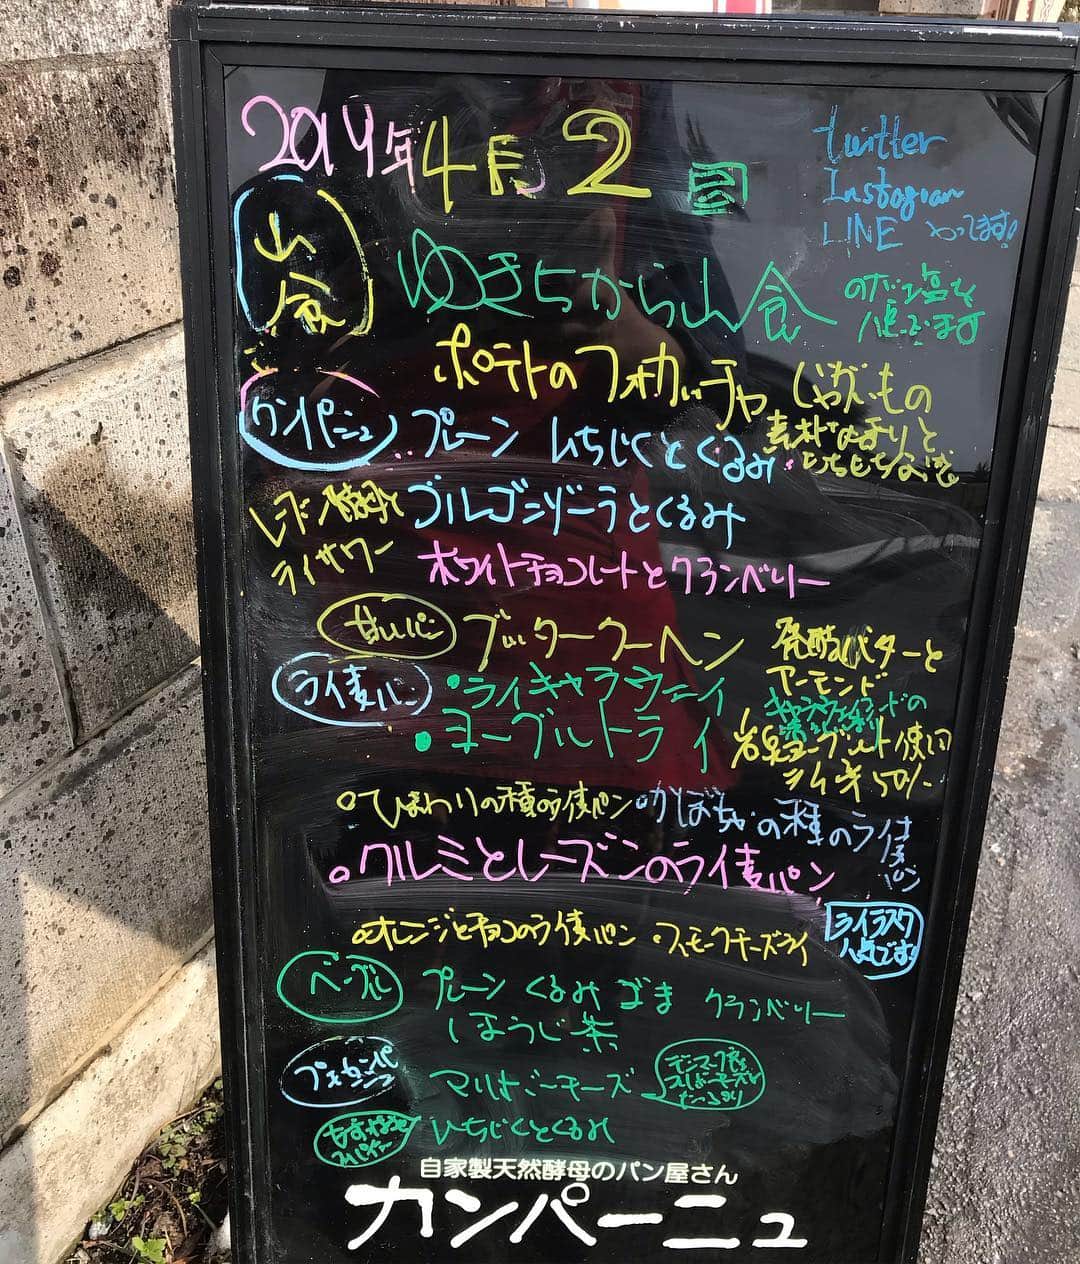 2019年4月2日
twitter
Instagram
LINE やってます!
山食
ゆきちから山食
ポテトのフォカッチャ じゃがいもの
カンパーニュ
プレーン いちじくとくるみ
ゴルゴンゾーラとくるみ
レーズン酵母と
ライサワー
ホワイトチョコレートとクランベリー
甘いパン
ブッタークーヘン
発酵バターと
アーモンド
ライ麦パン
・ライキャラウェイ
・ヨーグルトライ
岩泉ヨーグルト使用
ライ麦50%
・ひまわりの種のライ麦パン
・かぼちゃの種のライ麦パン
・クルミとレーズンのライ麦パン
・オレンジとチョコのライ麦パン ・スモークチーズライ
ライラスク
入点です!
ベーグル
プレーン くるみ ごま クランベリー
ほうじ茶
プチカンパーニュ
マリボーチーズ
たっぷり
いちじくとくるみ
自家製天然酵母のパン屋さん
カンパーニュ